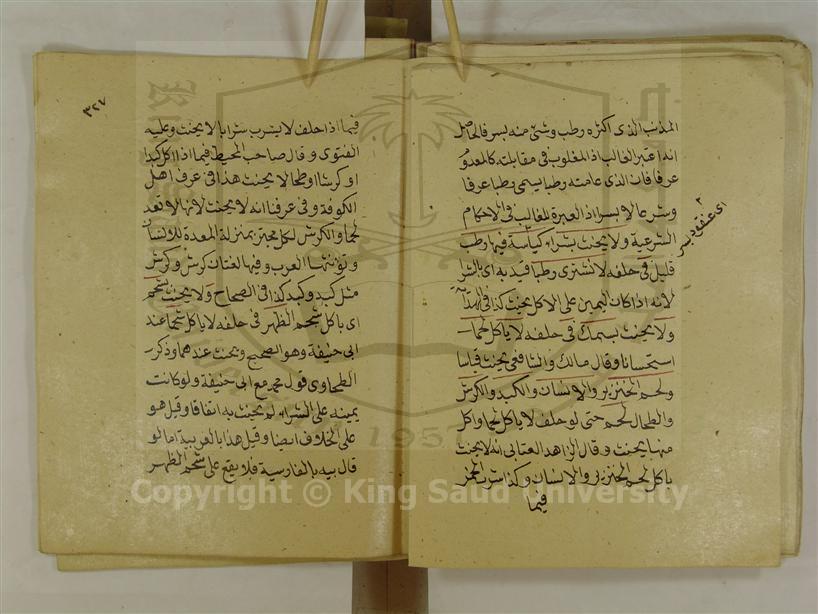 المذنب الذى اكثره رطب وشئ منه بسر فالحاصل
انه اعتبر الغالب اذ المغلوب فى مقابلته كالمعدوم
عرفا فان الذى عامته رطبا يسمى رطبا عرفا
وشرعا لا بسرا اذ العبرة للغالب فى الاحكام
الشرعية ولا يحنث بشراء كباسة فيها رطب
اى عنقود بسر
قليل فى حلفه لا يشترى رطبا قيد به اى بالشرا
لانه اذا كان اليمين على الاكل يحنث كذا فى الهداية
ولا يحنث بسمك فى حلفه لا ياكل لحما
استحسانا وقال مالك والشافعى يحنث قياسا
ولحم الخنزير والانسان والكبد والكرش
والطحال لحم حتى لو حلف لا ياكل لحما واكل
منها يحنث وقال الزاهد العتابى انه لا يحنث
باكل لحم الخنزير والانسان وكذا شرب الخمر
فيما
٣٢٧
فيما اذا حلف لا يشرب شرابا لا يحنث وعليه
الفتوى وقال صاحب المحيط فيما اذا اكل كبدا
او كرشا او طحالا يحنث هذا فى عرف اهل
الكوفة وفى عرفنا انه لا يحنث لانها لا تعد
لحما والكرش لكل مجتر بمنزلة المعدة للانسان
وتؤنثها العرب وفيها لغتان كرش وكرش
مثل كبد وكبد كذا فى الصحاح ولا يحنث بشحم
اى باكل شحم الظهر فى حلفه لا ياكل شحما عند
ابى حنيفة وهو الصحيح ويحنث عندهما وذكر
الطحاوى قول محمد مع ابى حنيفة ولو كانت
يمينه على الشراء لم يحنث به اتفاقا وقيل هو
على الخلاف ايضا وقيل هذا بالعربية اما لو
قال بيه بالفارسية فلا يقع على شحم الظهر
Copyright © King Saud University
1957